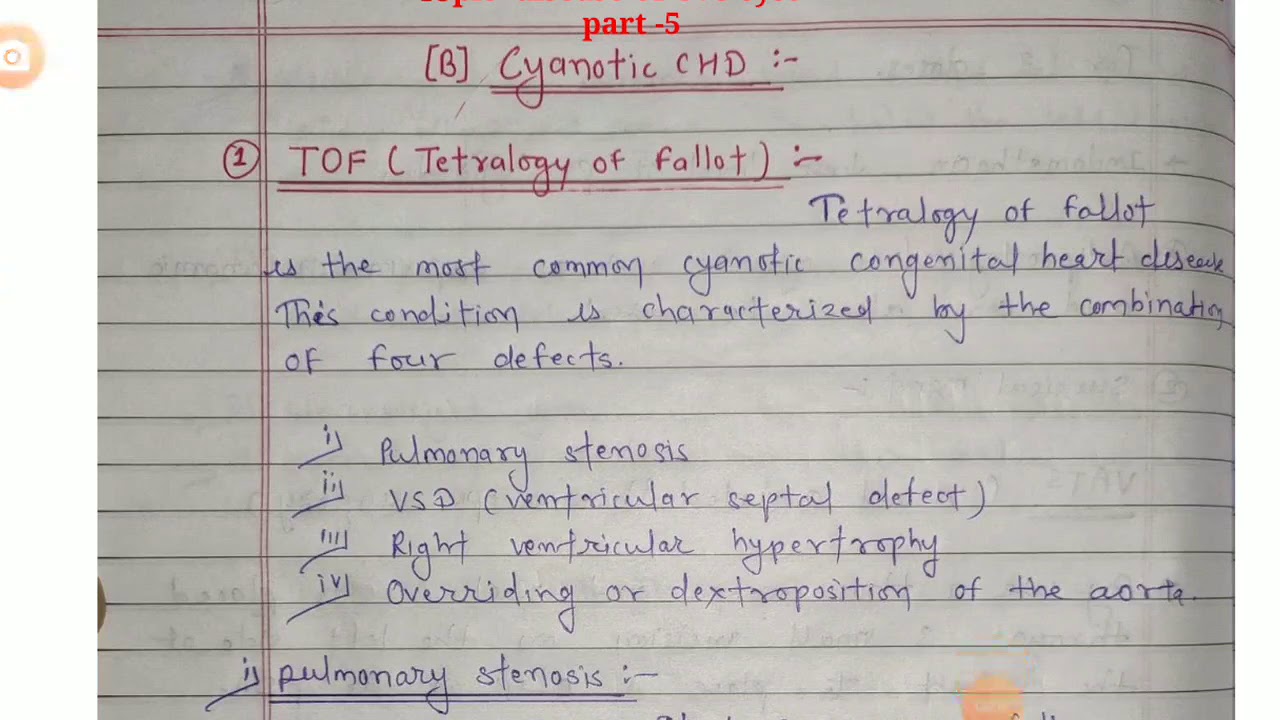 part -5
[B] Cyanotic CHD :-
① TOF (Tetralogy of fallot) :-
Tetralogy of fallot
is the most common cyanotic congenital heart
This condition is characterized by the combination
of four defects.
i) Pulmonary stenosis
ii) VSD (ventricular septal defect)
iii) Right ventricular hypertrophy
iv) Overriding or dextroposition of the aorta.
i) pulmonary stenosis :-